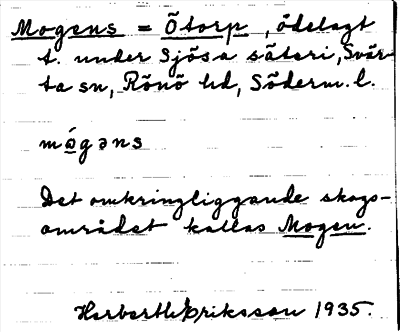 Mogens = Ötorp, ödelagt
t. under Sjösa säteri, Svär-
ta sn, Rönö hd, Söderm. l.
mógəns
Det omkringliggande skogs-
området kallas Mogen.
Herbert Eriksson 1935.